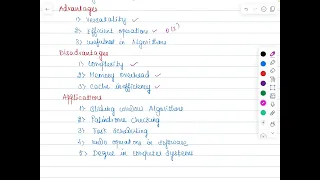 Advantages
1) Versatility
2) Efficient operation O(1)
3) Usefulness in Algorithms
Disadvantages
1) Complexity
2) Memory overhead
3) Cache inefficiency
Applications
1) Sliding window Algorithms
2) Palindrome Checking
3) Task Scheduling
4) undo operations in software
5) Deque in computer systems